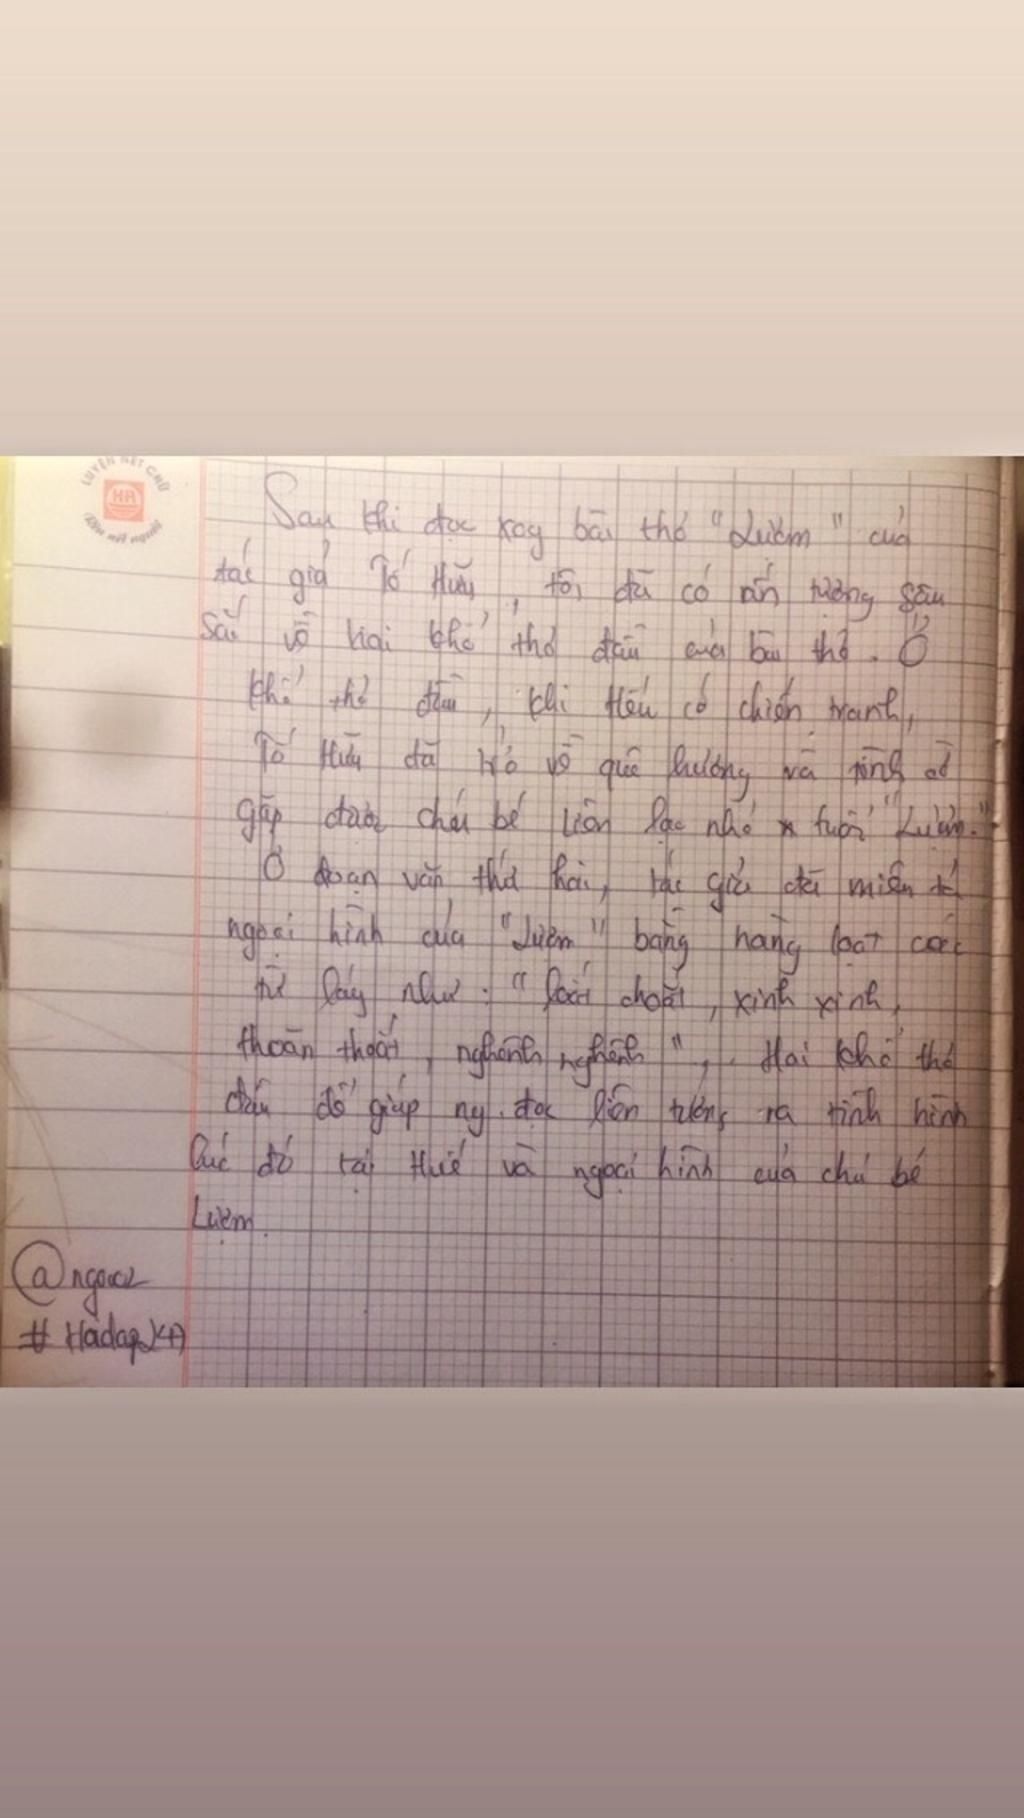 LUYỆN NÉT CHỮ
HA
RÈN NẾT NGƯỜI
Sau khi đọc xog bài thơ "Lượm" của
tác giả Tố Hữu, tôi đã có ấn tượng sâu
sắc về hai khổ thơ đầu của bài thơ. Ở
khổ thơ đầu, khi Huế có chiến tranh,
Tố Hữu đã trở về quê hương và tình cờ
gặp được chú bé liên lạc nhỏ tuổi "Lượm."
Ở đoạn văn thứ hai, tác giả đã miêu tả
ngoại hình của "Lượm" bằng hàng loạt các
từ láy như: "loắt choắt, xinh xinh,
thoăn thoắt, nghênh nghênh",. Hai khổ thơ
đầu đó giúp ng đọc liên tưởng ra tình hình
lúc đó tại Huế và ngoại hình của chú bé
Lượm.